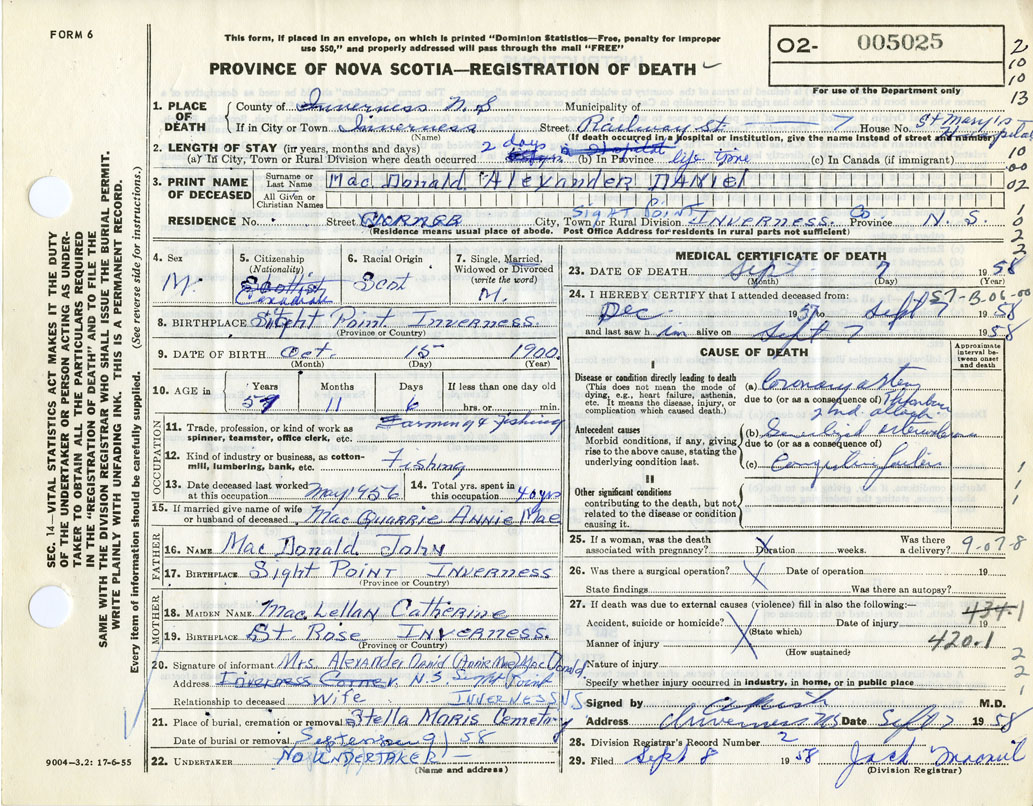 FORM 6
This form, if placed in an envelope, on which is printed "Dominion Statistics—Free, penalty for improper
use $50," and properly addressed will pass through the mail "FREE"
PROVINCE OF NOVA SCOTIA—REGISTRATION OF DEATH
O2- 005025
For use of the Department only
2
10
10
13
1. PLACE OF DEATH
County of Inverness N.S Municipality of
If in City or Town Inverness Street Railway St House No. St Mary's Hospital
(Name) (If death occurred in a hospital or institution, give the name instead of street and number)
2. LENGTH OF STAY (in years, months and days) 2 days life time
(a) In City, Town or Rural Division where death occurred (b) In Province (c) In Canada (if immigrant)
10
00
02
3. PRINT NAME OF DECEASED
Surname or Last Name Mac Donald Alexander DANIEL
All Given or Christian Names
RESIDENCE No. Street CORNER City, Town or Rural Division Sight Point INVERNESS. Co. Province N. S.
(Residence means usual place of abode. Post Office Address for residents in rural parts not sufficient)
4. Sex M.
5. Citizenship (Nationality) Scottish Canadian
6. Racial Origin Scot
7. Single, Married, Widowed or Divorced (write the word) M.
8. BIRTHPLACE Sight Point Inverness.
(Province or Country)
9. DATE OF BIRTH Oct. 15 1900
(Month) (Day) (Year)
10. AGE in Years Months Days If less than one day old
57 11 6 hrs. or min.
OCCUPATION
11. Trade, profession, or kind of work as spinner, teamster, office clerk, etc. Farming & Fishing
12. Kind of industry or business, as cotton-mill, lumbering, bank, etc. Fishing
13. Date deceased last worked at this occupation May 1956
14. Total yrs. spent in this occupation 40 yrs
15. If married give name of wife or husband of deceased Mac Quarrie Annie Mae
FATHER
16. NAME Mac Donald John
17. BIRTHPLACE Sight Point INVERNESS
(Province or Country)
MOTHER
18. MAIDEN NAME Mac Lellan Catherine
19. BIRTHPLACE St. Rose INVERNESS.
(Province or Country)
20. Signature of informant Mrs. Alexander David (Annie Mae) MacDonald.
Address Inverness Corner. N.S. Sight Point
Relationship to deceased Wife INVERNESS NS
21. Place of burial, cremation or removal Stella Maris Cemetary
Date of burial or removal September 9/58
22. UNDERTAKER NO UNDERTAKER
(Name and address)
MEDICAL CERTIFICATE OF DEATH
23. DATE OF DEATH Sept. 7 1958
(Month) (Day) (Year)
24. I HEREBY CERTIFY that I attended deceased from: 57-B-06-00
Dec. 1957 to Sept 7 1958
and last saw h im alive on Sept 7 1958
CAUSE OF DEATH
Approximate interval between onset and death
I
Disease or condition directly leading to death
(This does not mean the mode of dying, e.g., heart failure, asthenia, etc. It means the disease, injury, or complication which caused death.)
(a) Coronary artery
due to (or as a consequence of)
2nd. attack.
Antecedent causes
Morbid conditions, if any, giving rise to the above cause, stating the underlying condition last.
(b) Generalized arteriosclerosis
due to (or as a consequence of)
(c) Congestive failure
II
Other significant conditions
contributing to the death, but not related to the disease or condition causing it.
25. If a woman, was the death associated with pregnancy? Duration weeks. Was there a delivery? 9-07-8
26. Was there a surgical operation? X Date of operation 19
State findings Was there an autopsy?
27. If death was due to external causes (violence) fill in also the following:—
Accident, suicide or homicide? X Date of injury 19
(State which)
434-1
420.1
Manner of injury
(How sustained)
Nature of injury
Specify whether injury occurred in industry, in home, or in public place
Signed by M.D.
Address Inverness NS Date Sept 7 1958
28. Division Registrar's Record Number 2
29. Filed Sept 8 1958 Jack
(Division Registrar)
SEC. 14—VITAL STATISTICS ACT MAKES IT THE DUTY
OF THE UNDERTAKER OR PERSON ACTING AS UNDER-
TAKER TO OBTAIN ALL THE PARTICULARS REQUIRED
IN THE "REGISTRATION OF DEATH" AND TO FILE THE
SAME WITH THE DIVISION REGISTRAR WHO SHALL ISSUE THE BURIAL PERMIT.
WRITE PLAINLY WITH UNFADING INK. THIS IS A PERMANENT RECORD.
Every item of information should be carefully supplied. (See reverse side for instructions.)
9004—3.2: 17-6-55